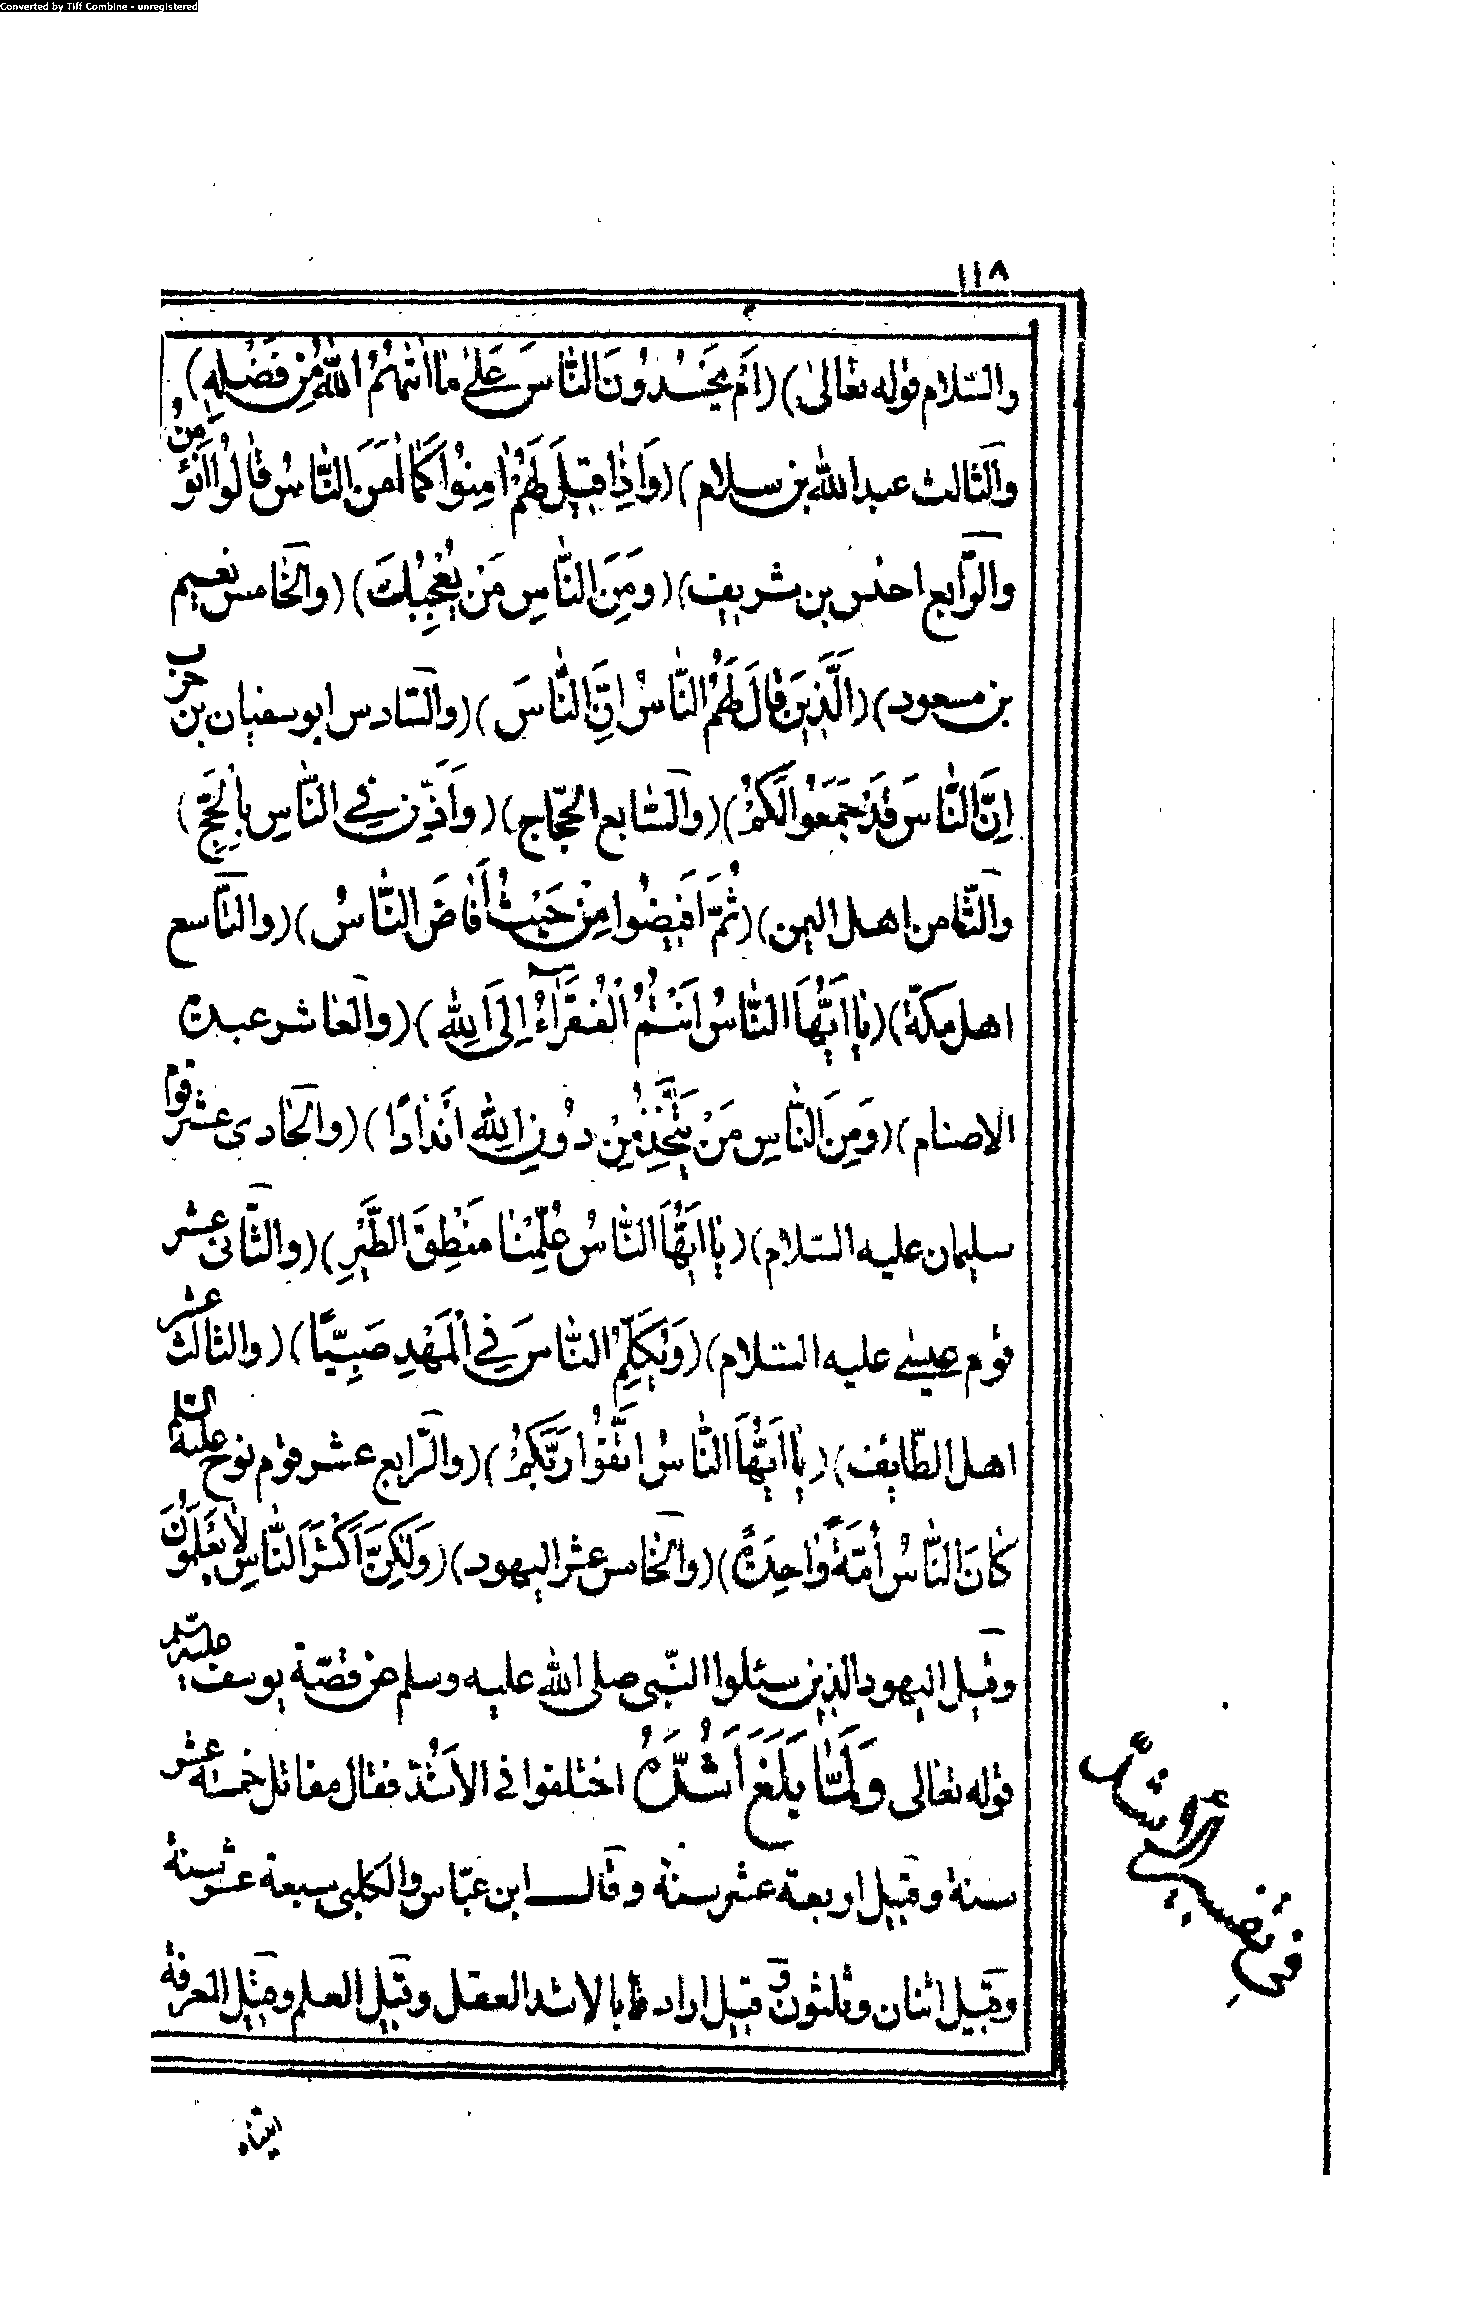 Converted by Tiff Combine - unregistered
١١٨
والسّلام قوله تعالىٰ) (اَمْ يَحْسُدُونَ النّٰاسَ عَلىٰ مٰا اٰتٰيهُمُ اللّٰهُ مِنْ فَضْلِهِ)
والثّالث عبد الله بن سلام) (وَاِذٰا قيٖلَ لَهُمْ اٰمِنُوا كَمٰا اٰمَنَ النّٰاسُ قٰالُوا اَنُؤْمِنُ
والرّابع اخنس بن شريف) (وَمِنَ النّٰاسِ مَنْ يُعْجِبُكَ) (والخامس نعيم
بن مسعود) (اَلَّذيٖنَ قٰالَ لَهُمُ النّٰاسُ اِنَّ النّٰاسَ) (والسّادس ابو سفيان بن حرب
اِنَّ النّٰاسَ قَدْ جَمَعُوا لَكُمْ) (والسّابع الحجّاج) (وَاَذِّنْ فِي النّٰاسِ بِالْحَجِّ)
والثّامن اهل اليمن) (ثُمَّ اَفيٖضُوا مِنْ حَيْثُ أَفٰاضَ النّٰاسُ) (والتّاسع
اهل مكّة) (يٰا اَيُّهَا النّٰاسُ اَنْتُمُ الْفُقَرٰآءُ اِلَى اللّٰهِ) (والعاشر عبدة
الاصنام) (وَمِنَ النّٰاسِ مَنْ يَتَّخِذُ مِنْ دُونِ اللّٰهِ اَنْدٰادًا) (والحادى عشر قوم
سليمان عليه السّلام) (يٰا اَيُّهَا النّٰاسُ عُلِّمْنٰا مَنْطِقَ الطَّيْرِ) (والثّانى عشر
قوم عيسى عليه السّلام) (وَيُكَلِّمُ النّٰاسَ فِي الْمَهْدِ صَبِيًّا) (والثالث عشر
اهل الطّايف) (يٰا اَيُّهَا النّٰاسُ اتَّقُوا رَبَّكُمْ) (والرّابع عشر قوم نوح عليه السلم
كٰانَ النّٰاسُ اُمَّةً وٰاحِدَةً) (والخامس عشر اليهود) (وَلٰكِنَّ اَكْثَرَ النّٰاسِ لاٰ يَعْلَمُونَ
وقيل اليهود الذين سئلوا النّبى صلى الله عليه وسلم عن قصّة يوسف عليه سلم
قوله تعالى وَلَمّٰا بَلَغَ اَشُدَّهُ اختلفوا فى الاَشُدّ فقال مقاتل خمسة عشر
سنة وقيل اربعة عشر سنة وقال ابن عبّاس والكلبى سبعة عشر سنة
وقيل اثنان وثلثون وقيل اراد بالاشد العقل وقيل العلم وقيل المعرفة
فى تفسير الأشدّ